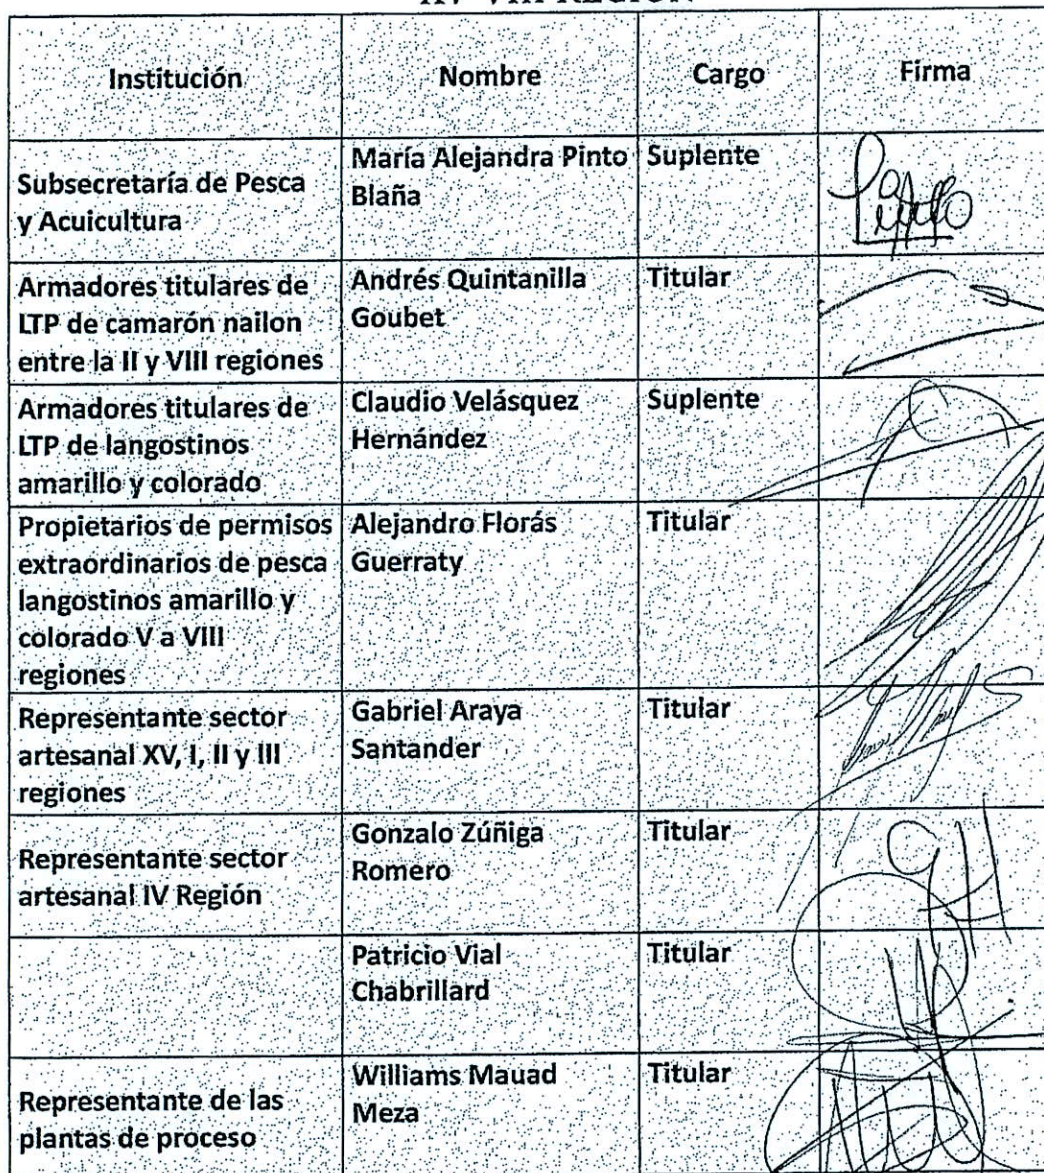 Institución Nombre Cargo Firma
Subsecretaría de Pesca
y Acuicultura
María Alejandra Pinto
Blaña
Suplente
Armadores titulares de
LTP de camarón nailon
entre la II y VIII regiones
Andrés Quintanilla
Goubet
Titular
Armadores titulares de
LTP de langostinos
amarillo y colorado
Claudio Velásquez
Hernández
Suplente
Propietarios de permisos
extraordinarios de pesca
langostinos amarillo y
colorado V a VIII
regiones
Alejandro Florás
Guerraty
Titular
Representante sector
artesanal XV, I, II y III
regiones
Gabriel Araya
Santander
Titular
Representante sector
artesanal IV Región
Gonzalo Zúñiga
Romero
Titular
Patricio Vial
Chabrillard
Titular
Representante de las
plantas de proceso
Williams Mauad
Meza
Titular